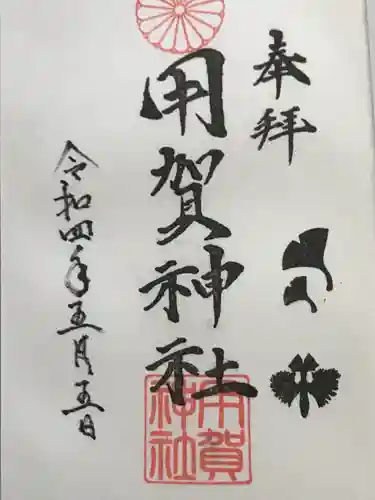 奉拝
用賀神社
用賀神社
令和四年五月五日